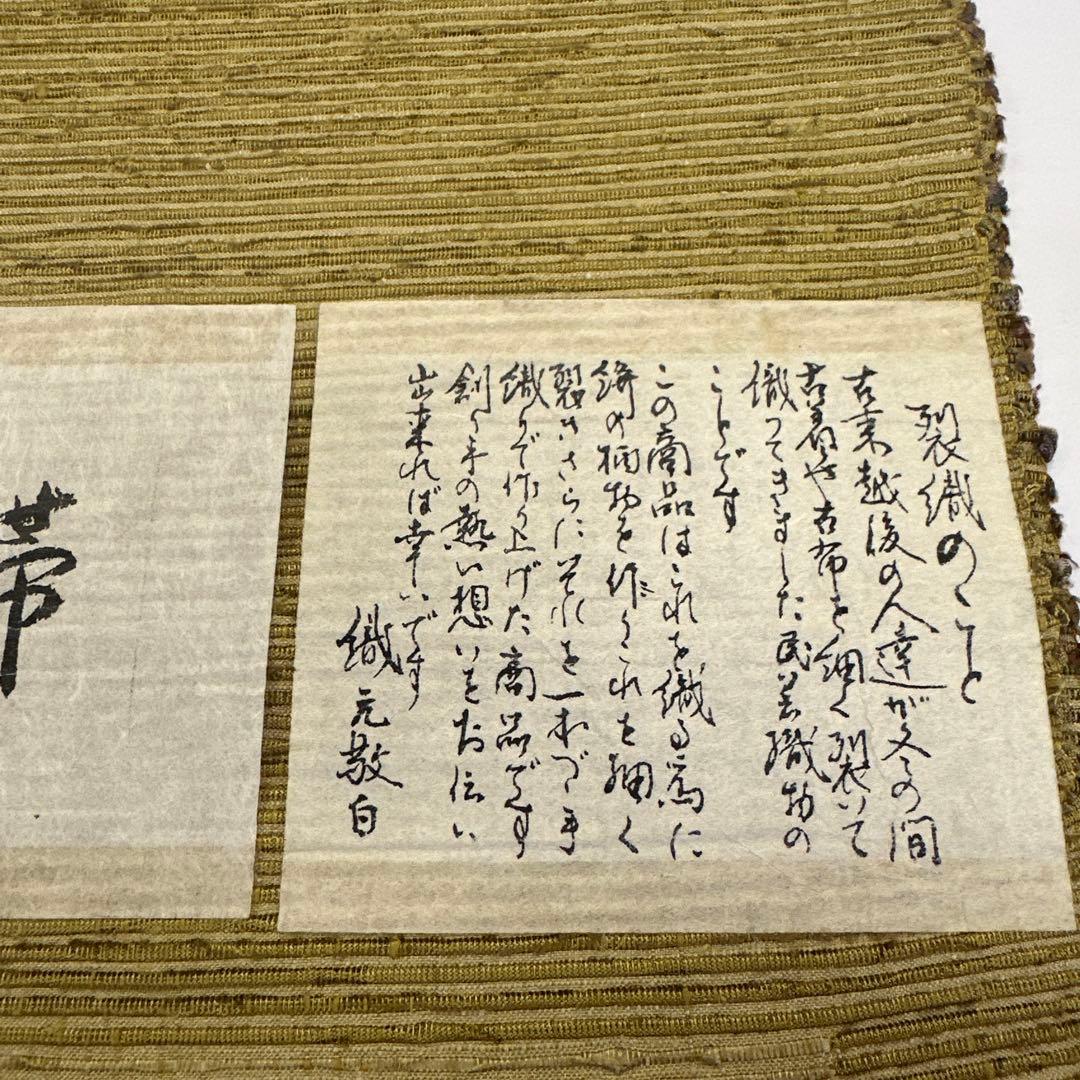 裂織のこと
古来越後の人達が冬の間
古着や古布を細く裂いて
織ってきました民芸織物の
ことです
この商品はこれを織る為に
絣の柄物を作りこれを細く
裂きさらにそれを一本づゝ手
織りで作り上げた商品です
創り手の熱い想いをお伝い
出来れば幸いです
織元敬白
帯